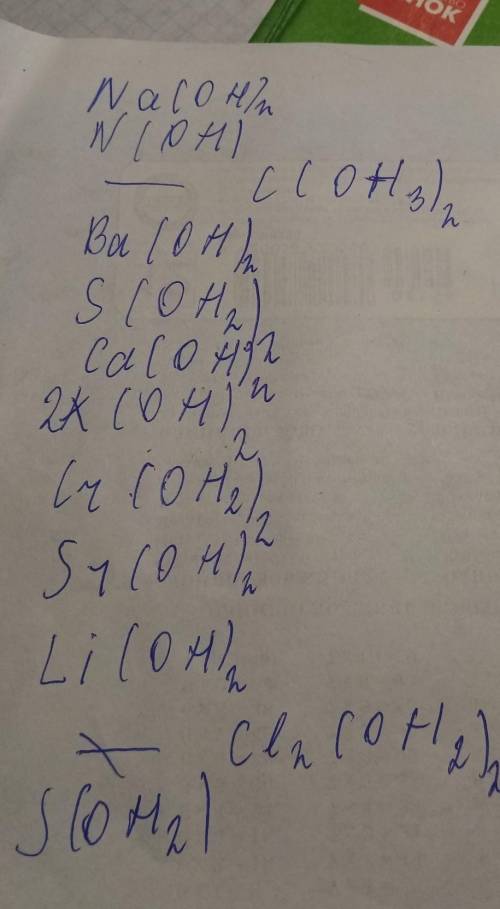 НОК
Na(OH)2
N(OH)
— C(OH3)2
Ba(OH)2
S(OH2)
Ca(OH)2
2K(OH)2
Cr(OH2)2
Sr(OH)2
Li(OH)2
Cl2(OH2)2
S(OH2)